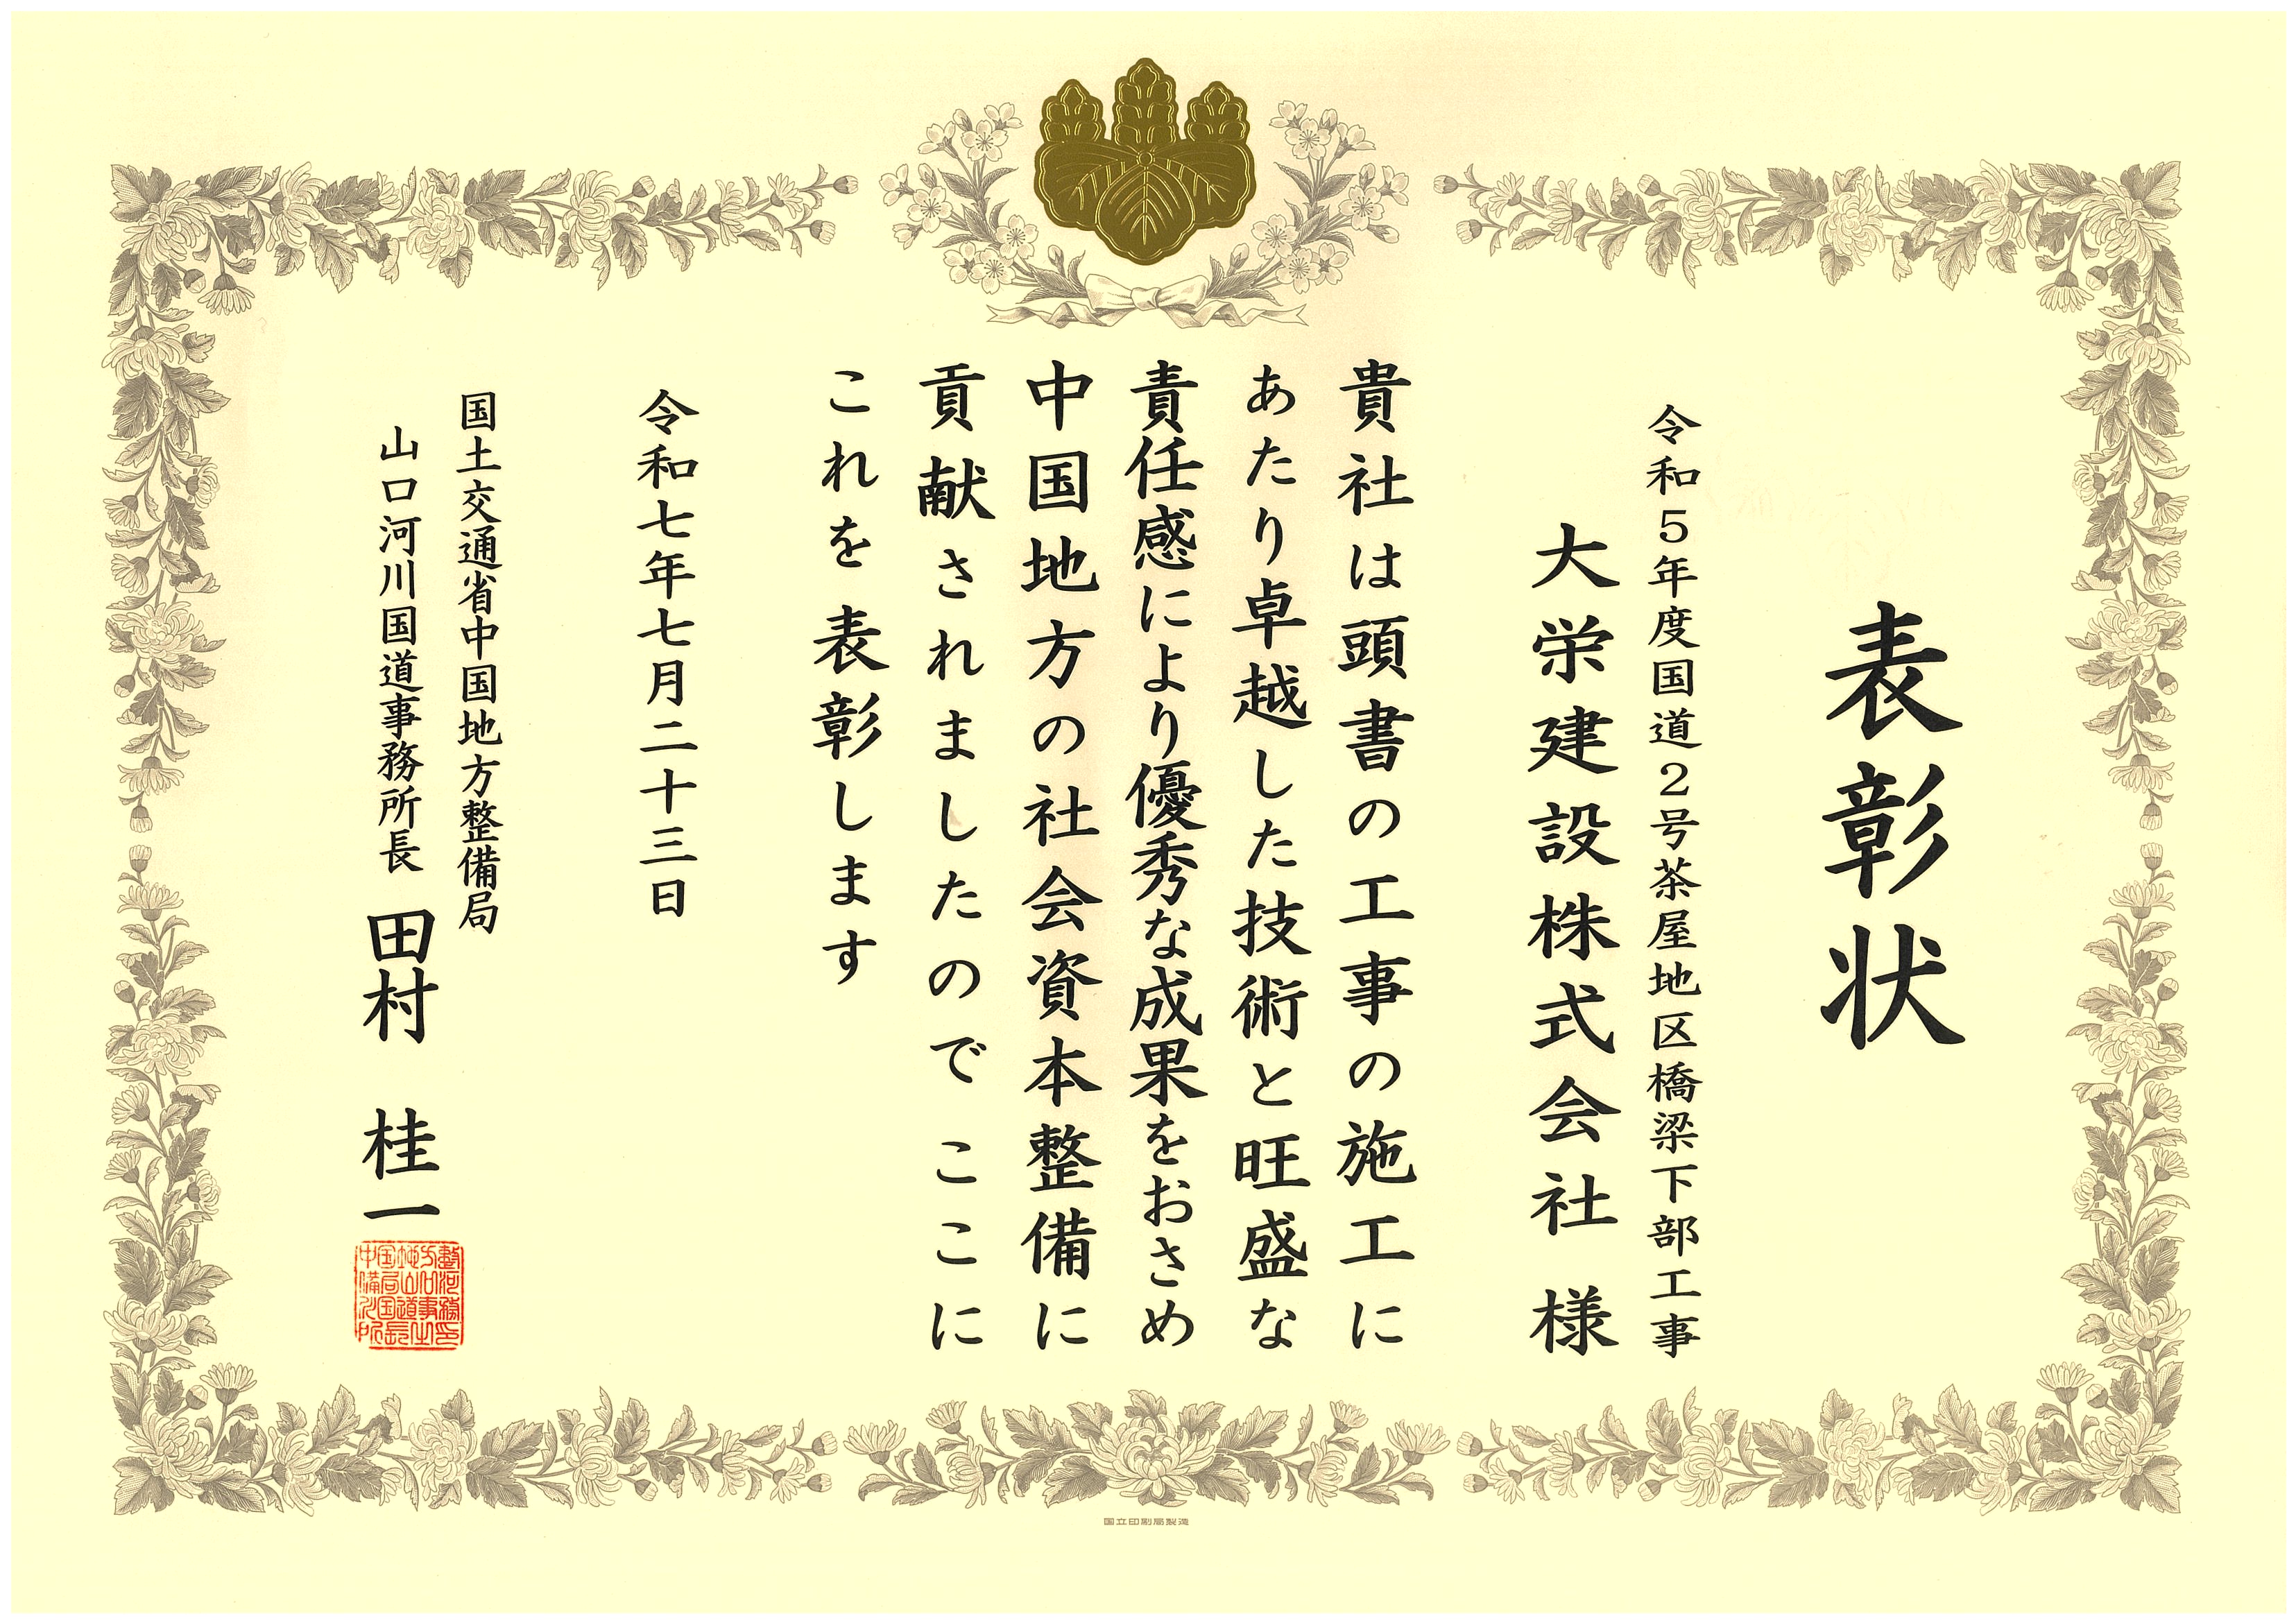 表彰状
令和5年度国道2号茶屋地区橋梁下部工事
大栄建設株式会社 様
貴社は頭書の工事の施工に
あたり卓越した技術と旺盛な
責任感により優秀な成果をおさめ
中国地方の社会資本整備に
貢献されましたのでここに
これを表彰します
令和七年七月二十三日
国土交通省中国地方整備局
山口河川国道事務所長 田村 桂一
国立印刷局製造